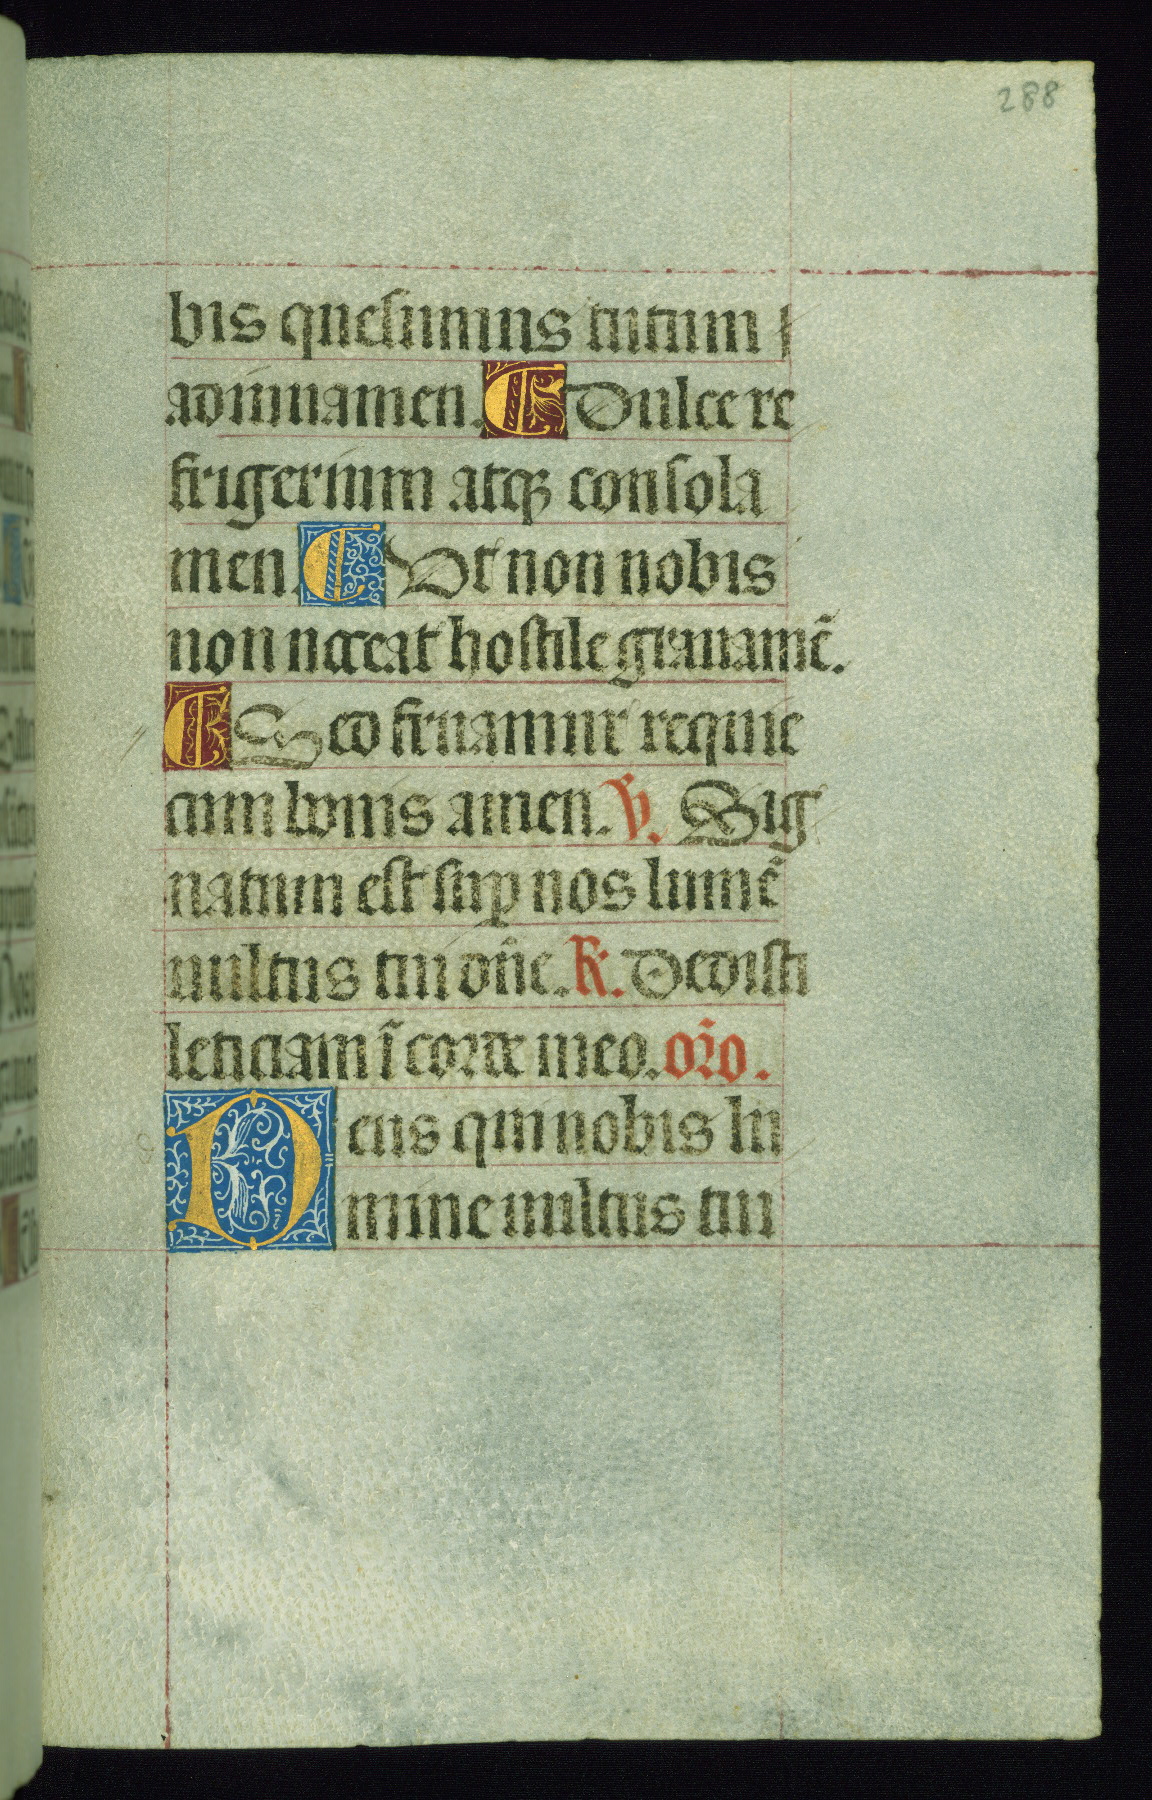 288
bis quesumus tutum
adiuuamen. Dulce re
frigerium atq; consola
men. Vt non nobis
non noceat hostile grauamē.
Sed fruamur requie
cum bonis amen. V. Sig
natum est sup nos lumē
uultus tui dn̄e. R. Dedisti
leticiam ī corde meo. or̄o.
Deus qui nobis lu
mine uultus tui